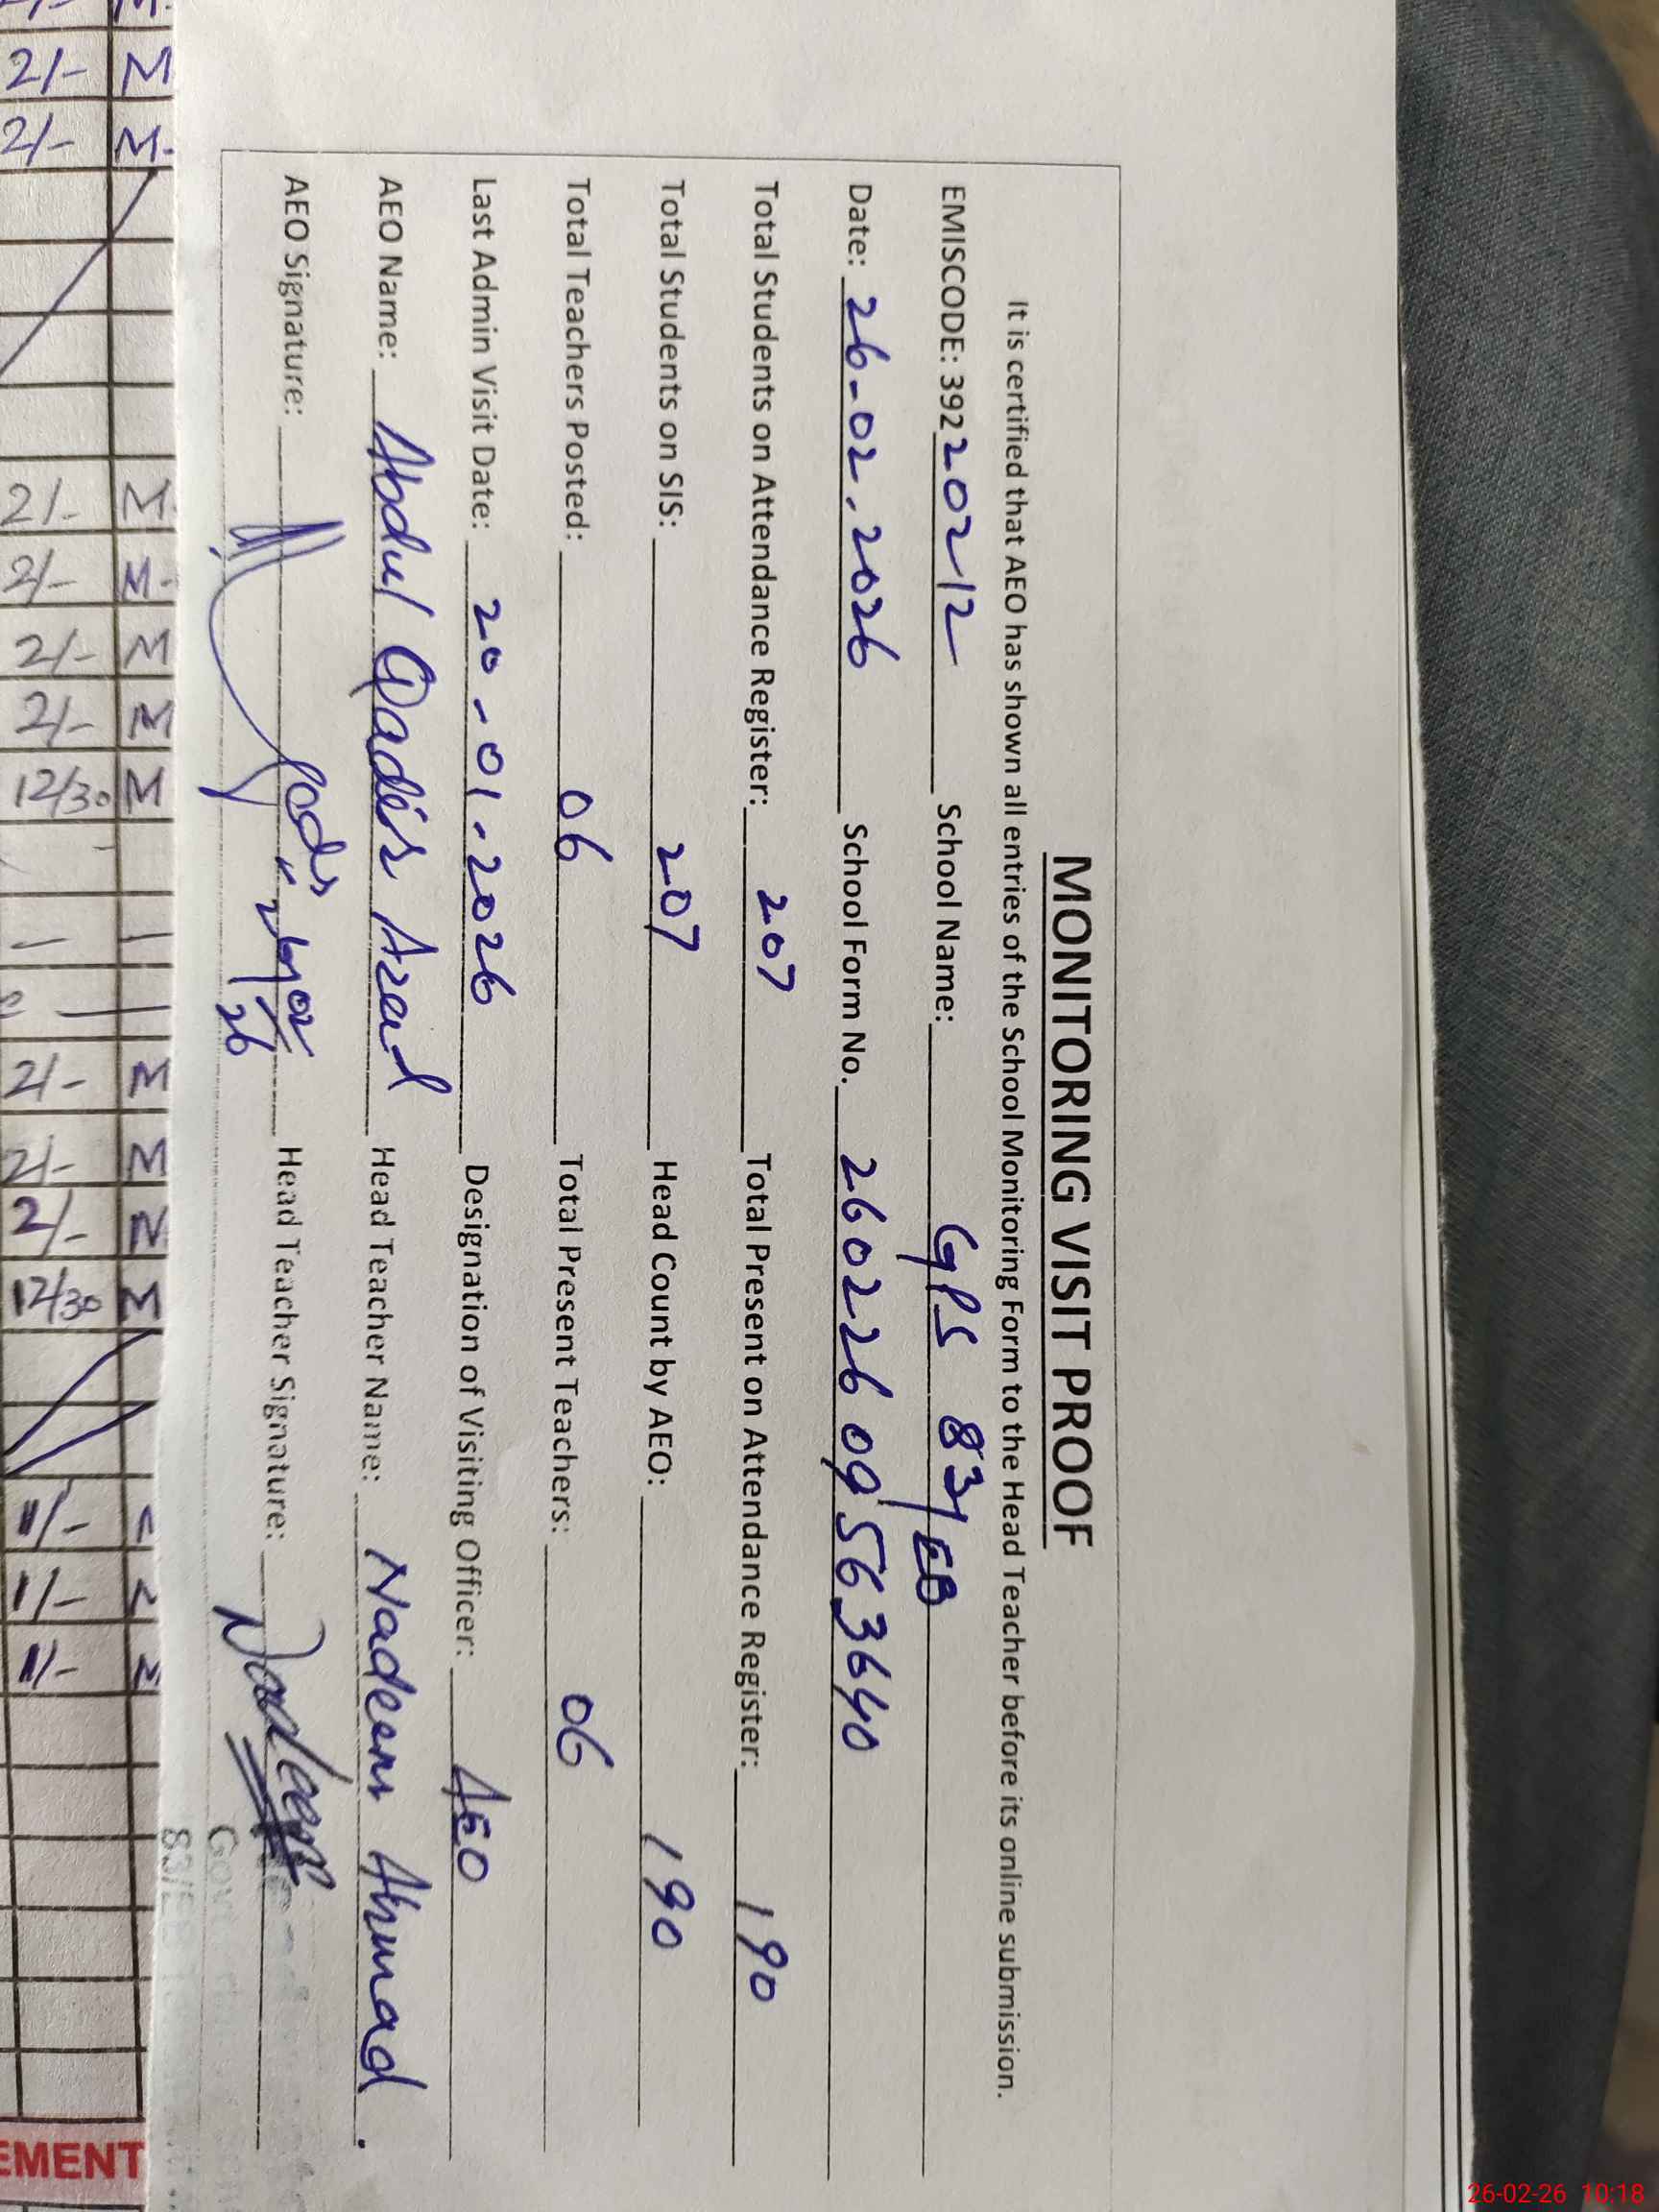 MONITORING VISIT PROOF
It is certified that AEO has shown all entries of the School Monitoring Form to the Head Teacher before its online submission.
EMISCODE: 39220212 School Name: GPS 83/EB
Date: 26-02-2026 School Form No. 26022609563640
Total Students on Attendance Register: 207 Total Present on Attendance Register: 190
Total Students on SIS: 207 Head Count by AEO: 190
Total Teachers Posted: 06 Total Present Teachers: 06
Last Admin Visit Date: 20-01-2026 Designation of Visiting Officer: AEO
AEO Name: Abdul Qadir Azad Head Teacher Name: Nadeem Ahmad.
AEO Signature: 26 Head Teacher Signature: Nadeem
83/EB
EMENT
2/- 2/- 2/- 2/- 2/- 2/- 12/30 2/- 2/- 2/- 12/30 1/- 1/- 1/-
26-02-26 10:18